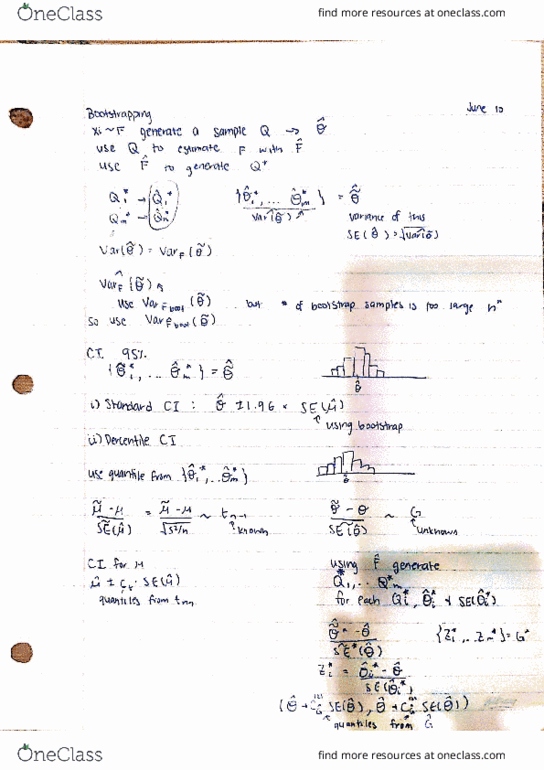 OneClass
find more resources at oneclass.com
Bootstrapping
June 10
xi ~ F generate a sample Q → θ̂
use Q to estimate F with F̂
use F̂ to generate Q*
Q₁* → θ̂₁*
Qm* → θ̂m*
{θ̂₁*, ... θ̂m*} = θ̃̂
Var(θ̃)
variance of this
SE(θ̂) = √var(θ̃)
Var(θ̃) = VarF(θ̃)
VarF̂(θ̃)
use VarFboot(θ̃) but # of bootstrap samples is too large nⁿ
So use VarFboot(θ̃)
CI 95%
{θ̂₁*, ... θ̂m*} = θ̃̂
θ̂
i) Standard CI: θ̂ ± 1.96 × SE(μ̂)
using bootstrap
ii) Percentile CI
use quantile from {θ̂₁*, ... θ̂m*}
θ̂
μ̃ - μ / SE(μ̂) = μ̃ - μ / √s²/n ~ tn-1
known
θ̃ - θ / SE(θ̂) ~ G
unknown
CI for μ
μ̂ ± Ct · SE(μ̂)
quantiles from tn-1
using F̂ generate
Q₁*, ... Qm*
for each Qi*, θ̂i* & SE(θ̂i*)
θ̃* - θ̂ / SE*(θ̂)
{Z₁*, ... Zm*} = G*
Zi* = θ̂i* - θ̂ / SE(θ̂i*)
(θ̂ + CG SE(θ̂), θ̂ + CG SE(θ̂))
quantiles from Ĝ
OneClass
find more resources at oneclass.com